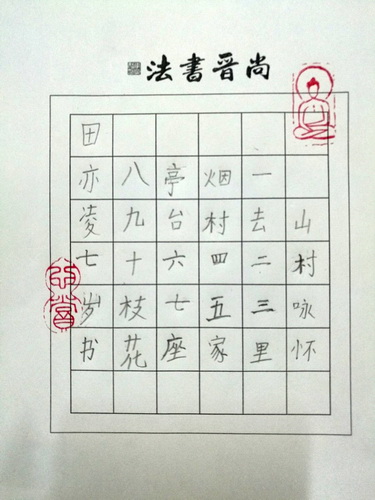 尚晉書法
山村咏怀
一去二三里
烟村四五家
亭台六七座
八九十枝花
田亦凌七岁书